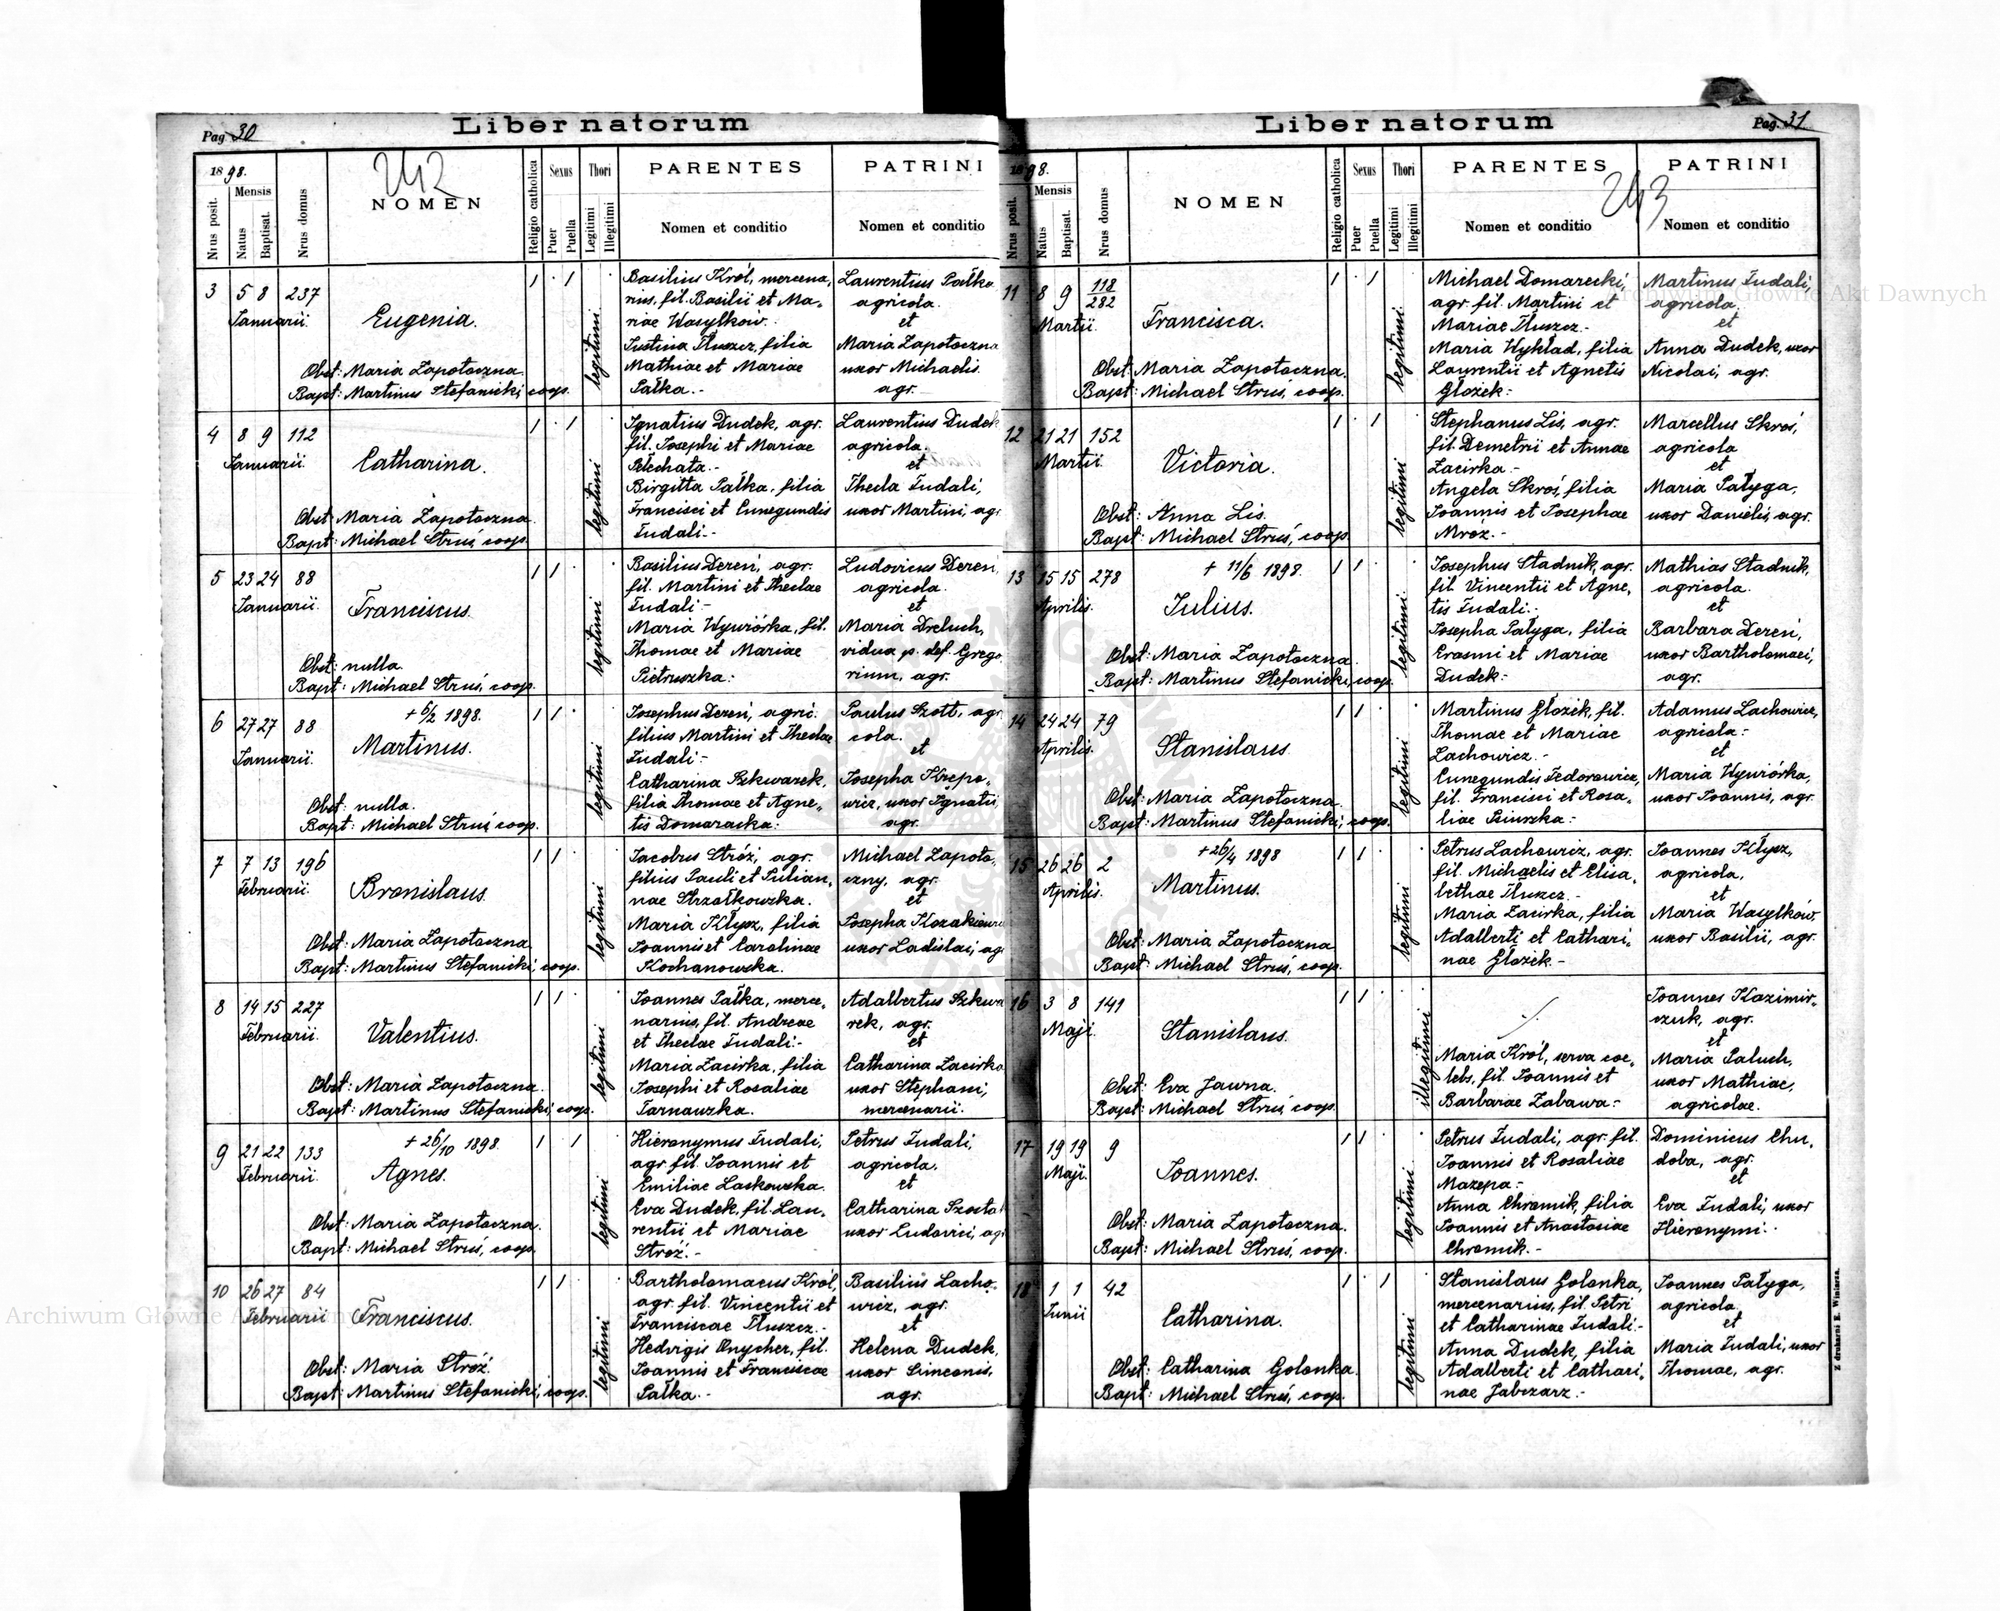 Liber natorum
Pag. 30
1898.
242
Nrus posit.
Mensis
Natus
Baptisat.
Nrus domus
NOMEN
Religio catholica
Sexus
Puer
Puella
Thori
Legitimi
Illegitimi
PARENTES
Nomen et conditio
PATRINI
Nomen et conditio
3 5 8 237
Januarii.
Eugenia.
Obst: Maria Zapotoczna.
Bapt: Martinus Stefanicki, coop.
legitimi
Basilius Król, mercena,
rius, fil. Basilii et Ma-
riae Wasylków.
Justina Tłuszcz, filia
Mathiae et Mariae
Pałka.-
Laurentius Pałka
agricola.
et
Maria Zapotoczna
uxor Michaelis.
agr.
4 8 9 112
Januarii.
Catharina.
Obst: Maria Zapotoczna.
Bapt: Michael Struś, coop.
legitimi
Ignatius Dudek, agr.
fil. Josephi et Mariae
Pelechata.-
Birgitta Pałka, filia
Francisci et Cunegundis
Judali.-
Laurentius Dudek
agricola.
et
Thecla Judali,
uxor Martini, agr.
5 23 24 88
Januarii.
Franciscus.
Obst: nulla.
Bapt: Michael Struś, coop.
legitimi
Basilius Dereń, agr.
fil. Martini et Theclae
Judali.-
Maria Wywiórka, fil.
Thomae et Mariae
Pietruszka.-
Ludovicus Dereń,
agricola.
et
Maria Dreluch,
vidua p. def. Grego
rium, agr.
6 27 27 88
Januarii.
+ 6/2 1898.
Martinus.
Obst: nulla.
Bapt: Michael Struś, coop.
legitimi
Josephus Dereń, agric.
filius Martini et Theclae
Judali.-
Catharina Szkwarek,
filia Thomae et Agne-
tis Domaracka.
Paulus Szott, agr
cola.
et
Josepha Krepo-
wicz, uxor Ignatii,
agr.
7 7 13 196
Februarii.
Bronislaus.
Obst: Maria Zapotoczna.
Bapt: Martinus Stefanicki, coop.
legitimi
Jacobus Stróż, agr.
filius Pauli et Julian-
nae Strzałkowska.
Maria Kłysz, filia
Joannis et Carolinae
Kochanowska.
Michael Zapoto-
czny, agr.
et
Josepha Kozakiewicz
uxor Ladislai, agr
8 14 15 227
Februarii.
Valentius.
Obst: Maria Zapotoczna.
Bapt: Martinus Stefanicki, coop.
legitimi
Joannes Pałka, merce-
narius, fil. Andreae
et Theclae Judali.-
Maria Zacirka, filia
Josephi et Rosaliae
Tarnawska.
Adalbertus Szkwa
rek, agr.
et
Catharina Zacirka
uxor Stephani,
mercenarii.
9 21 22 133
Februarii.
+ 26/10 1898.
Agnes.
Obst: Maria Zapotoczna.
Bapt: Michael Struś, coop.
legitimi
Hieronymus Judali,
agr. fil. Joannis et
Emiliae Laskowska.
Eva Dudek, fil. Lau-
rentii et Mariae
Stróż.-
Petrus Judali,
agricola.
et
Catharina Szostak
uxor Ludovici, agr
10 26 27 84
Februarii
Franciscus.
Obst: Maria Stróż.
Bapt: Martinus Stefanicki, coop.
legitimi
Bartholomaeus Król,
agr. fil. Vincentii et
Franciscae Tłuszcz.-
Hedvigis Onycher, fil.
Joannis et Franciscae
Pałka.-
Basilius Lacho-
wicz, agr.
et
Helena Dudek,
uxor Simeonis,
agr.
Liber natorum
Pag. 31
1898.
243
Nrus posit.
Mensis
Natus
Baptisat.
Nrus domus
NOMEN
Religio catholica
Sexus
Puer
Puella
Thori
Legitimi
Illegitimi
PARENTES
Nomen et conditio
PATRINI
Nomen et conditio
11 8 9 118/282
Martii.
Francisca.
Obst: Maria Zapotoczna.
Bapt: Michael Struś, coop.
legitimi
Michael Domarecki,
agr. fil. Martini et
Mariae Tłuszcz.-
Maria Wykład, filia
Laurentii et Agnetis
Głożek.-
Martinus Judali,
agricola
et
Anna Dudek, uxor
Nicolai, agr.
12 21 21 152
Martii.
Victoria.
Obst: Anna Lis.
Bapt: Michael Struś, coop.
legitimi
Stephanus Lis, agr.
fil. Demetrii et Annae
Zacirka.-
Angela Skroś, filia
Joannis et Josephae
Mróz.-
Marcellus Skroś,
agricola
et
Maria Pałyga,
uxor Danielis, agr.
13 15 15 278
Aprilis.
+ 11/6 1898.
Julius.
Obst: Maria Zapotoczna.
Bapt: Martinus Stefanicki, coop.
legitimi
Josephus Stadnik, agr.
fil. Vincentii et Agne-
tis Judali.-
Josepha Pałyga, filia
Erasmi et Mariae
Dudek.-
Mathias Stadnik,
agricola.
et
Barbara Dereń,
uxor Bartholomaei,
agr.
14 24 24 79
Aprilis.
Stanislaus.
Obst: Maria Zapotoczna.
Bapt: Martinus Stefanicki, coop.
legitimi
Martinus Głożek, fil.
Thomae et Mariae
Lachowicz.-
Cunegundis Fedorowicz,
fil. Francisci et Rosa-
liae Dziuszka.-
Adamus Lachowicz,
agricola.-
et
Maria Wywiórka,
uxor Joannis, agr.
15 26 26 2
Aprilis.
+ 26/4 1898
Martinus.
Obst: Maria Zapotoczna
Bapt: Michael Struś, coop.
legitimi
Petrus Lachowicz, agr.
fil. Michaelis et Elisa-
bethae Tłuszcz.-
Maria Zacirka, filia
Adalberti et Cathari-
nae Głożek.-
Joannes Kłysz,
agricola,
et
Maria Wasylków,
uxor Basilii, agr.
16 3 8 141
Maji.
Stanislaus.
Obst: Eva Jawna.
Bapt: Michael Struś, coop.
illegitimi
Maria Król, serva coe-
lebs, fil. Joannis et
Barbarae Zabawa.-
Joannes Kazimir-
czuk, agr.
et
Maria Paluch,
uxor Mathiae,
agricolae.
17 19 19 9
Maji.
Joannes.
Obst: Maria Zapotoczna.
Bapt: Michael Struś, coop.
legitimi
Petrus Judali, agr. fil.
Joannis et Rosaliae
Mazepa.-
Anna Chromik, filia
Joannis et Anastasiae
Chromik.-
Dominicus Chu-
doba, agr.
et
Eva Judali, uxor
Hieronymi.
18 1 1 42
Junii
Catharina.
Obst: Catharina Golonka.
Bapt: Michael Struś, coop.
legitimi
Stanislaus Golonka,
mercenarius, fil. Petri
et Catharinae Judali.-
Anna Dudek, filia
Adalberti et Cathari-
nae Gabczarz.-
Joannes Pałyga,
agricola.
et
Maria Judali, uxor
Thomae, agr.
Z drukarni E. Winiarza.
Archiwum Główne Akt Dawnych
Archiwum Główne Akt Dawnych